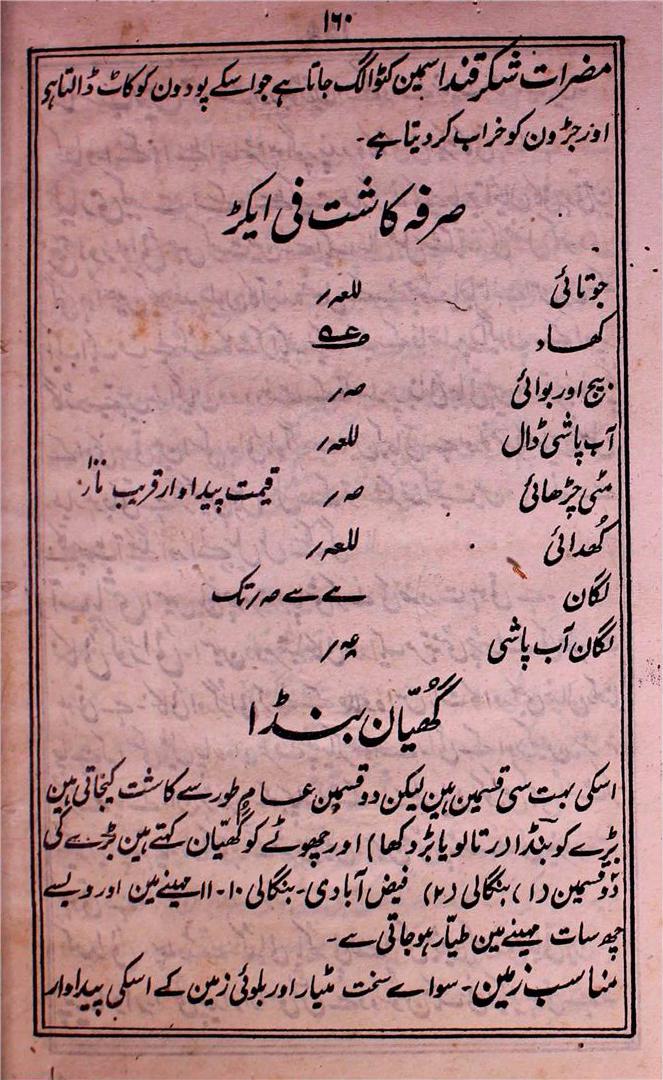 ۱۶۰
مضرات شکرقند اسمین کٹوا لگ جاتا ہے جو اسکے پودون کو کاٹ ڈالتا ہو
اور جڑون کو خراب کر دیتا ہے۔
صرفہ کاشت فی ایکڑ
جوتائی للعہ ر
کھاد
بیج اور بوائی صہ ر
آب پاشی ڈال للعہ ر
مٹی چڑھائی صہ ر قیمت پیداوار قریب
کھُدائی للعہ ر
لگان سے صہ ر تک
لگان آب پاشی ر
گھُیّان بنڈا
اسکی بہت سی قسمین ہین لیکن دو قسمین عام طور سے کاشت کیجاتی ہین
بڑے کو بنڈا (رتالو یا بڑدکھا) اور چھوٹے کو گھُیّان کہتے ہین بڑے کی
دو قسمین (۱) بنگالی (۲) فیض آبادی۔ بنگالی ۱۰۔۱۱ مہینے مین اور ویسے
چھ سات مہینے مین طیّار ہو جاتی ہے۔
مناسب زمین۔ سواے سخت مٹیار اور بلوئی زمین کے اسکی پیداوار